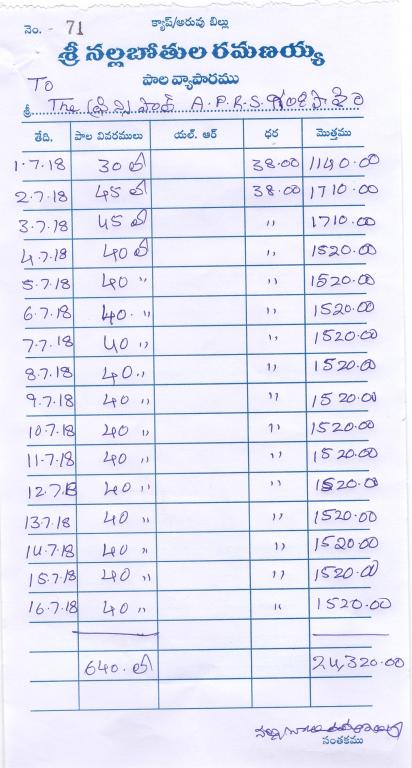 క్యాష్/అరువు బిల్లు
నెం. - 71
శ్రీ నల్లబోతుల రమణయ్య
పాల వ్యాపారము
To
శ్రీ. The ప్రిన్సిపాల్ A.P.R.S.
తేది. పాల వివరములు యల్. ఆర్ ధర మొత్తము
1.7.18 30 లీ 38.00 1140.00
2.7.18 45 లీ 38.00 1710.00
3.7.18 45 లీ " 1710.00
4.7.18 40 లీ " 1520.00
5.7.18 40 " " 1520.00
6.7.18 40. " " 1520.00
7.7.18 40 " " 1520.00
8.7.18 40. " " 1520.00
9.7.18 40 " " 1520.00
10.7.18 40 " " 1520.00
11.7.18 40 " " 1520.00
12.7.18 40 " " 1520.00
13.7.18 40 " " 1520.00
14.7.18 40 " " 1520.00
15.7.18 40 " " 1520.00
16.7.18 40 " " 1520.00
640. లీ 24,320.00
సంతకము